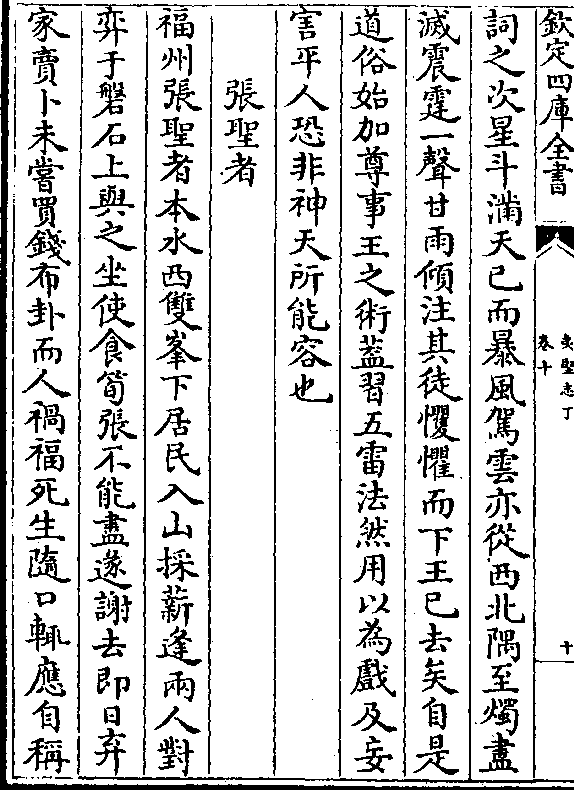 欽定四庫全書
夷堅志丁
卷十
十
詞之次星斗滿天已而暴風駕雲亦從西北隅至燭盡
滅震霆一聲甘雨傾注其徒懼懼而下王已去矣自是
道俗始加尊事王之術葢習五雷法然用以為戲及妄
害平人恐非神天所能容也
張聖者
福州張聖者本水西雙峯下居民入山採薪逢兩人對
弈于磐石上與之坐使食筍張不能盡遂謝去即日弃
家賣卜未嘗買錢布卦而人禍福死生隨口輒應自稱